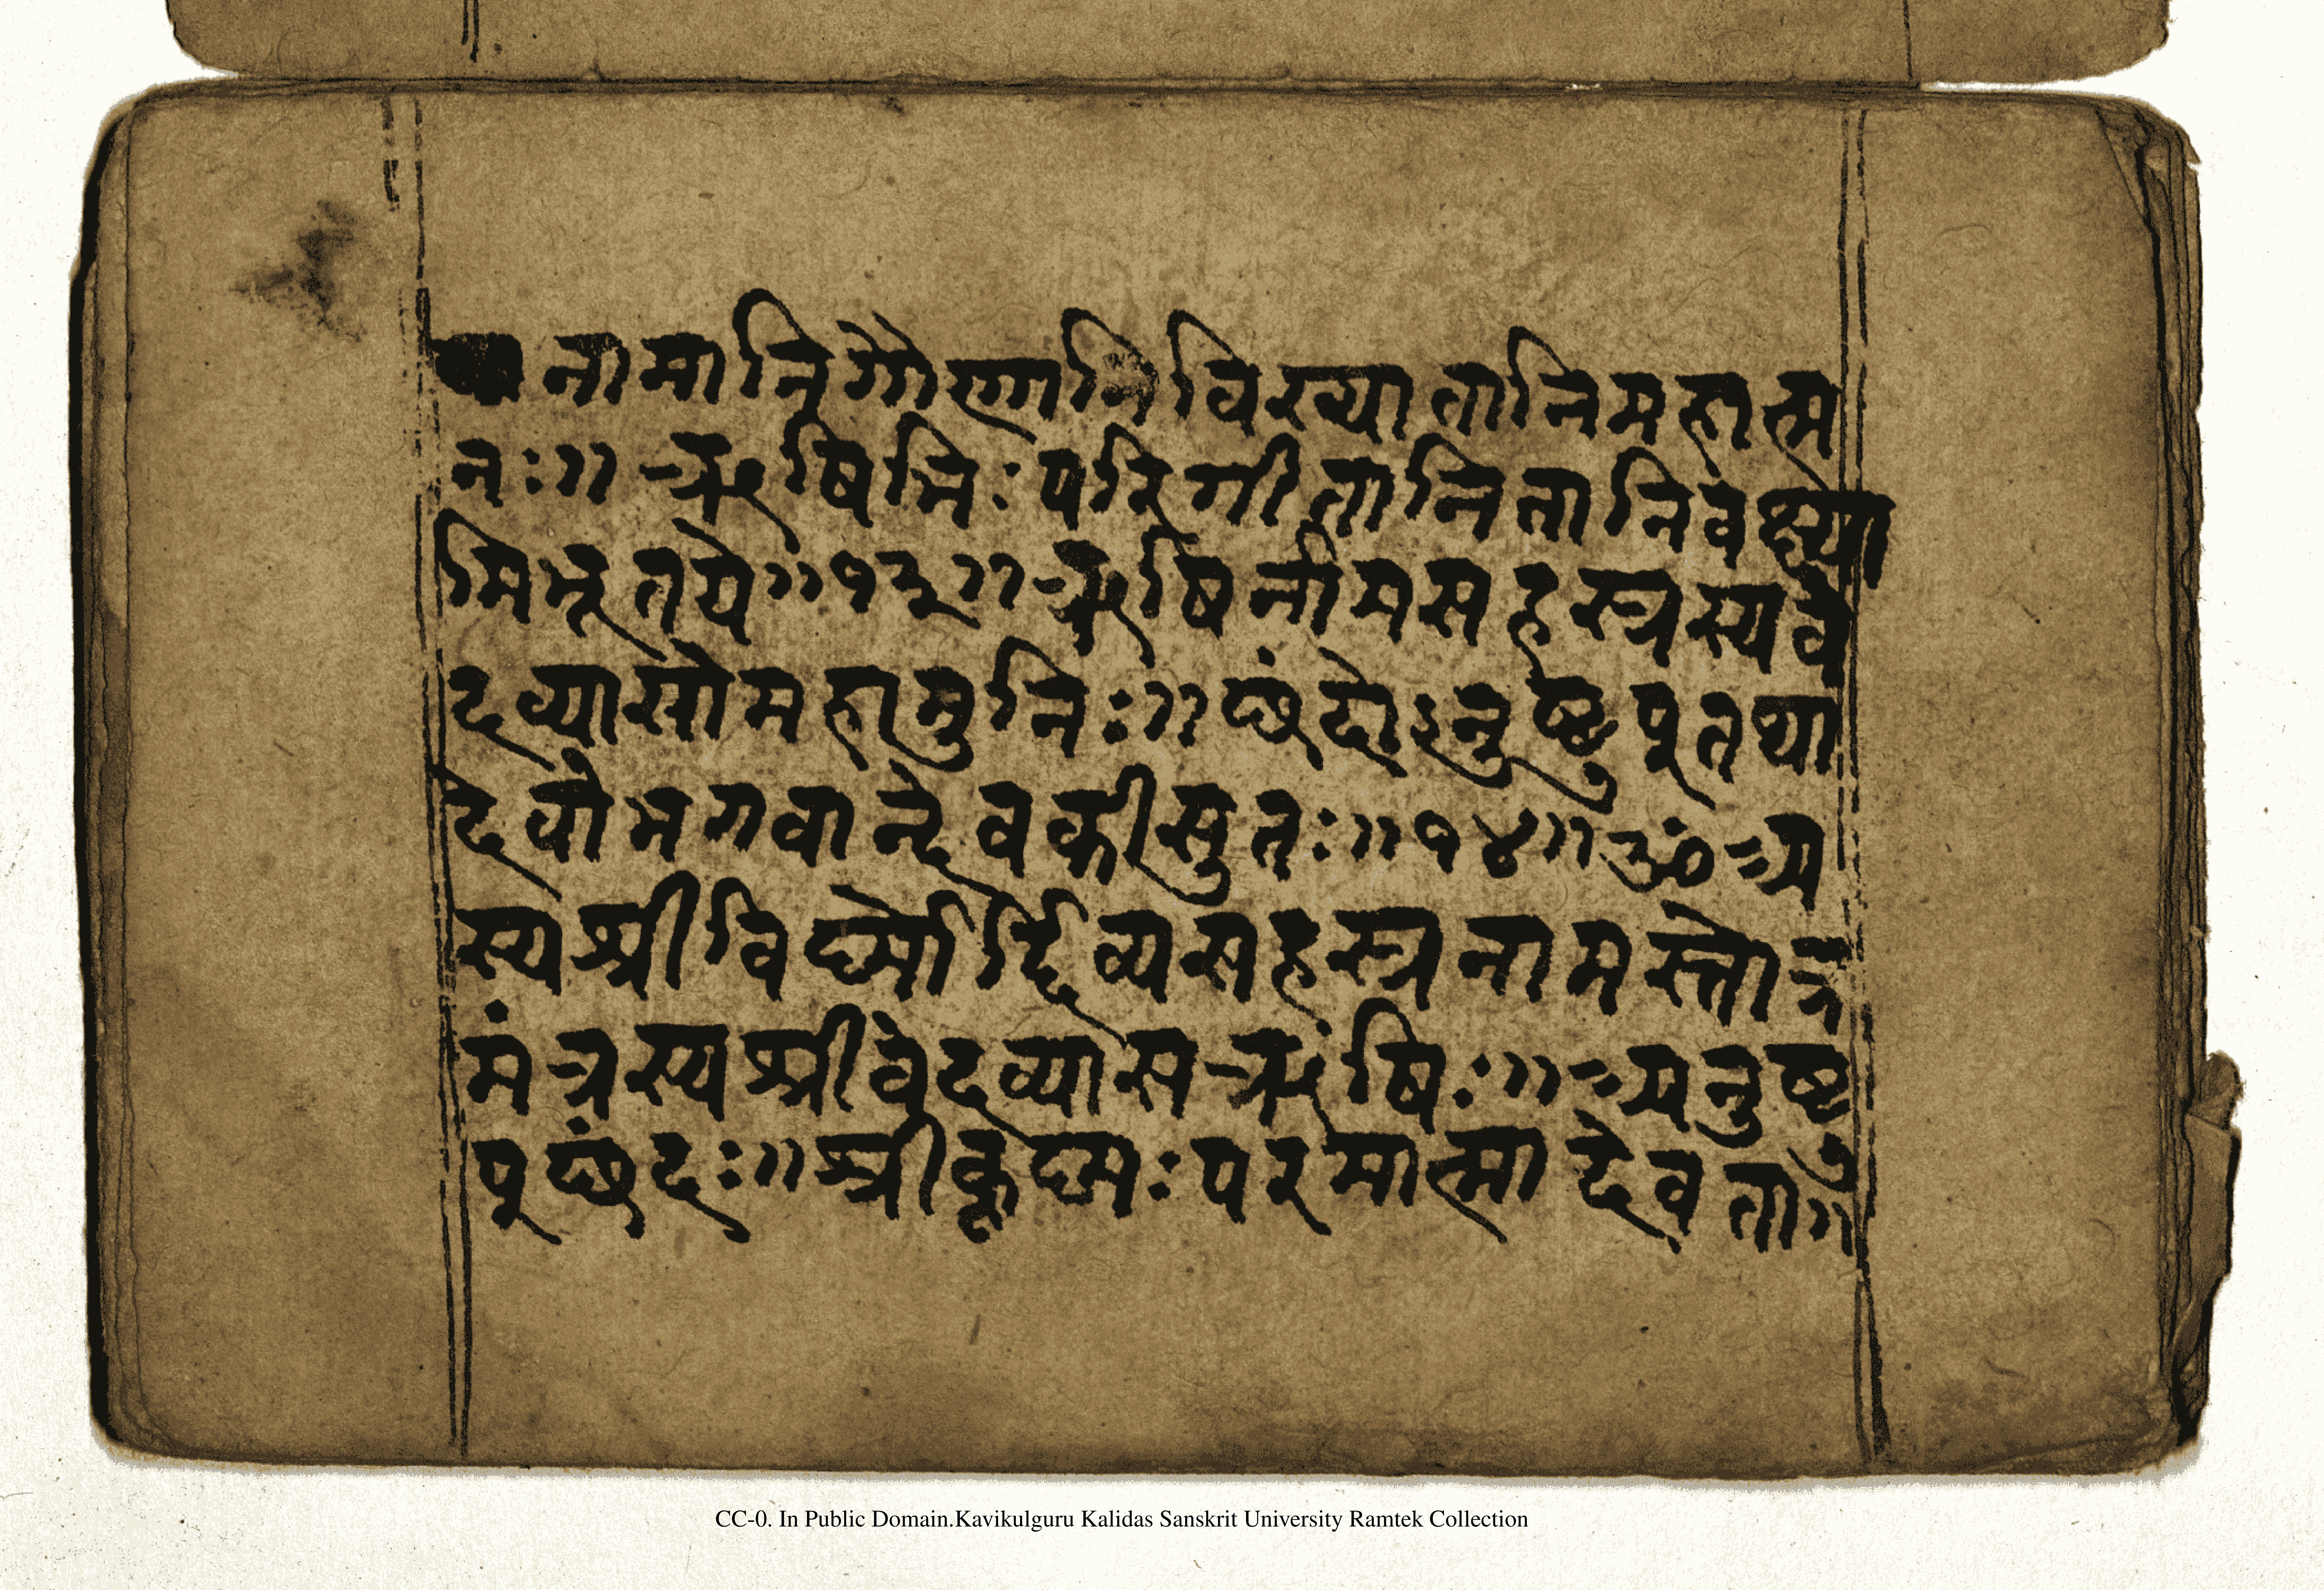 नामानिगौणानिविख्यातानिमहात्म
नः॥ ऋषिभिःपरिगीतानितानिवक्ष्या
मिभूतये॥१३॥ऋषिर्नामसहस्रस्यवे
दव्यासोमहामुनिः॥छंदोऽनुष्टुप्तथा
देवोभगवान्देवकीसुतः॥१४॥ॐअ
स्यश्रीविष्णोर्दिव्यसहस्रनामस्तोत्र
मंत्रस्यश्रीवेदव्यासऋषिः॥अनुष्टु
प्छंदः॥श्रीकृष्णःपरमात्मादेवता॥
CC-0. In Public Domain.Kavikulguru Kalidas Sanskrit University Ramtek Collection